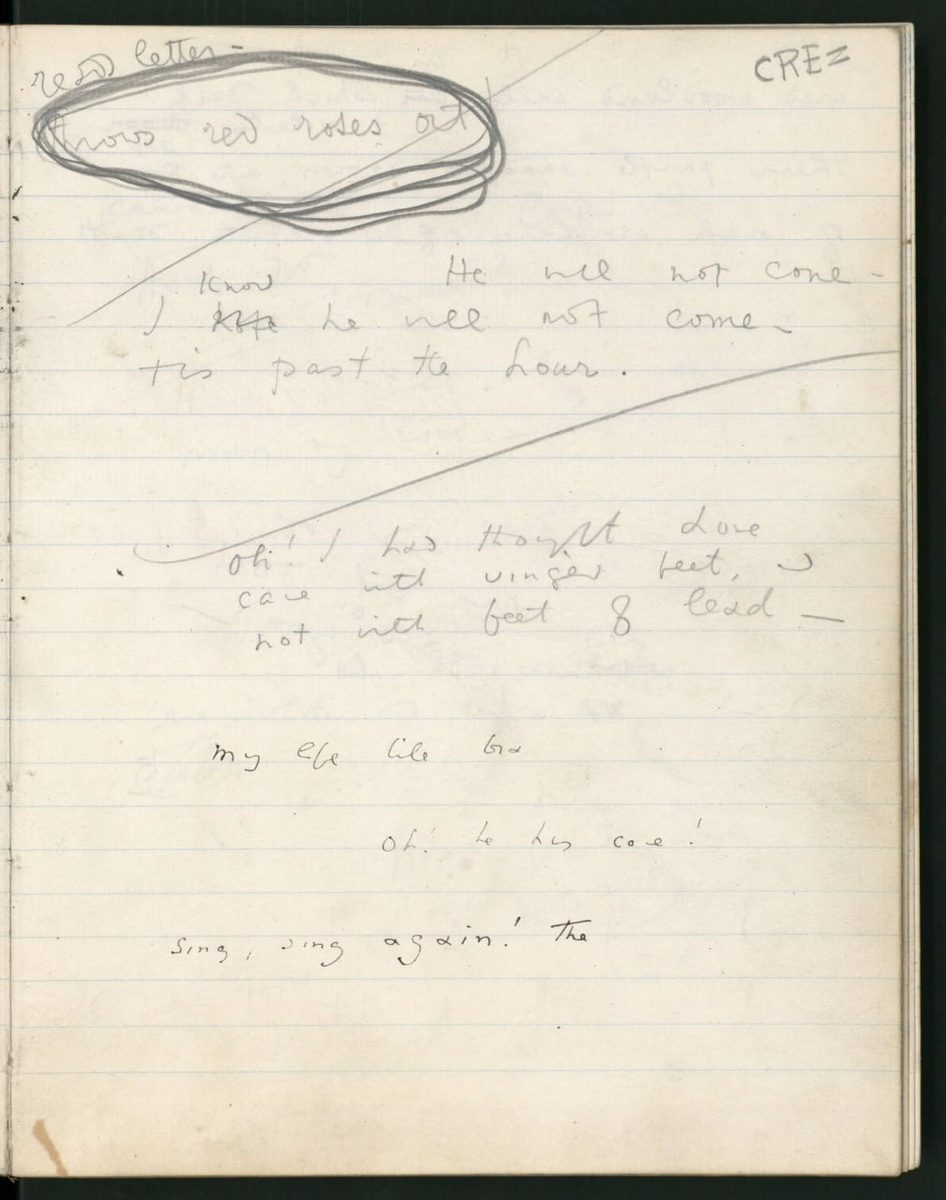 reads letter -
CRE
throws red roses out
He will not come -
Know
I hope he will not come -
tis past the hour.
Oh! I had thought Love
came with winged feet, &
not with feet of lead —
my life like
Oh! he has come!
Sing, sing again! The